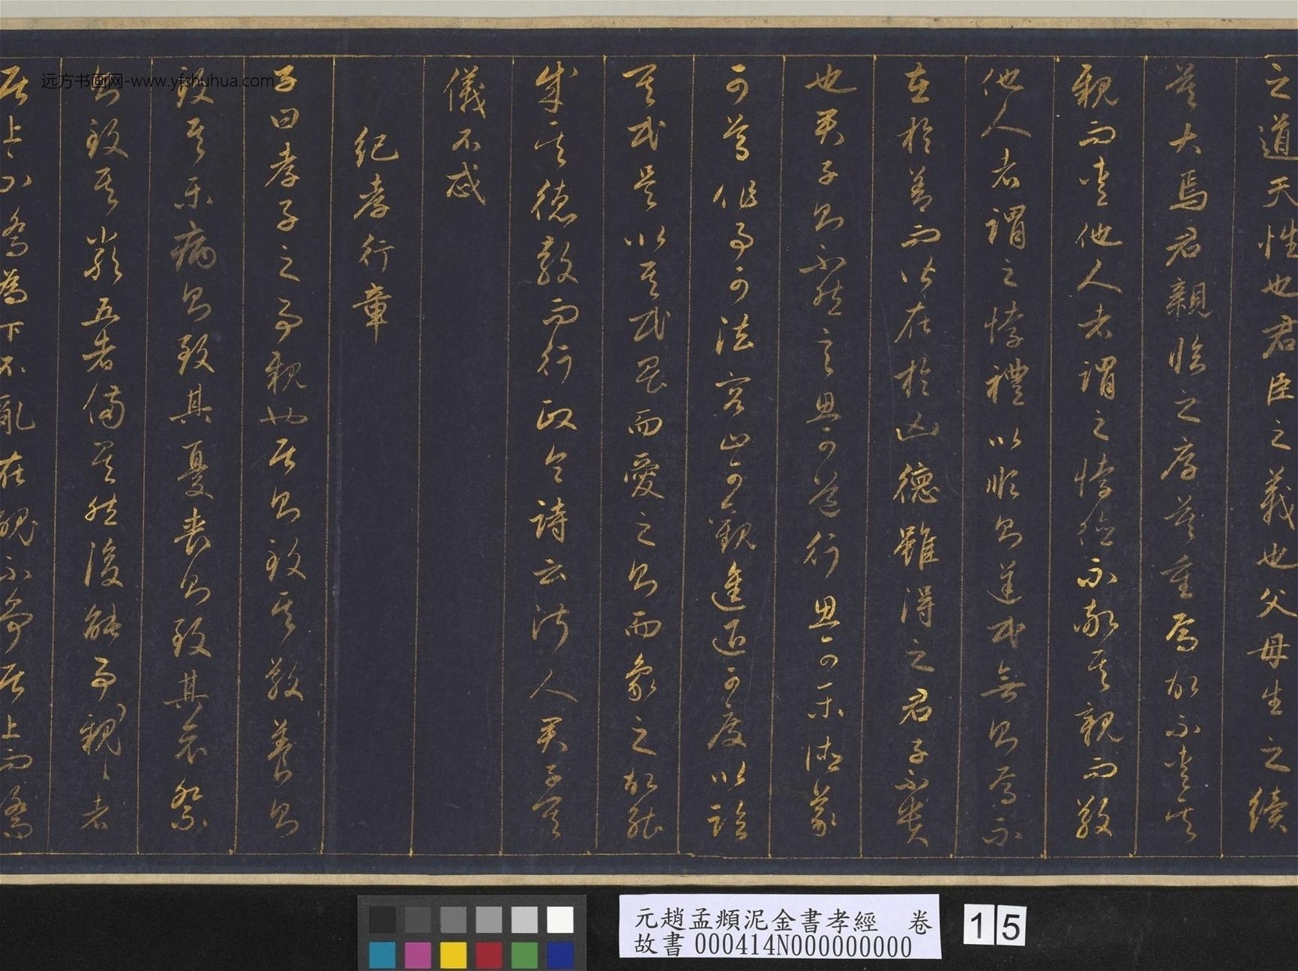 之道天性也君臣之義也父母生之續
莫大焉君親臨之厚莫重焉故不愛其
親而愛他人者謂之悖德不敬其親而敬
他人者謂之悖禮以順則逆民無則焉不
在於善而皆在於凶德雖得之君子不貴
也君子則不然言思可道行思可樂德義
可尊作事可法容止可觀進退可度以臨
其民是以其民畏而愛之則而象之故能
成其德教而行政令詩云淑人君子其
儀不忒
紀孝行章
子曰孝子之事親也居則致其敬養則
致其樂病則致其憂喪則致其哀祭
則致其嚴五者備矣然後能事親〻者
居上不驕為下不亂在醜不爭居上而驕
远方书画网-www.yfshuhua.com
元趙孟頫泥金書孝經 卷
故書 000414N000000000
15